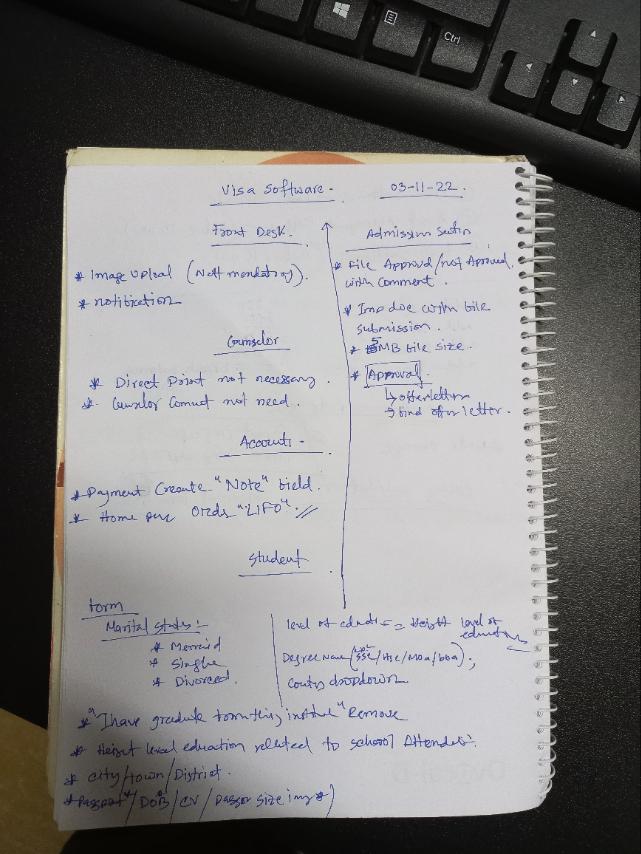 Ctrl
Visa Software.
03-11-22.
Front Desk.
* Image Upload (Nott mendatory).
* notification
Counselor
* Direct Point not necessary.
* not need.
Accounts.
* Payment Create "Note" field.
* Home "LIFO".
Student
Admission Section
* File Approved/not Aproved.
with Comment.
* Imp doc with file
submission.
* 5MB file size.
* Approval
↳ offer letter
letter.
form
Marital status :-
* Married
* Single
* Divorced.
level of
level of
education
Degree Name (SSC/HSC/MBA/BBA);
dropdown
* "I have graduate from this institute" Remove
* level education related to school Attended.
* City/town/District.
* Passport*/DOB/CV/ size img*)